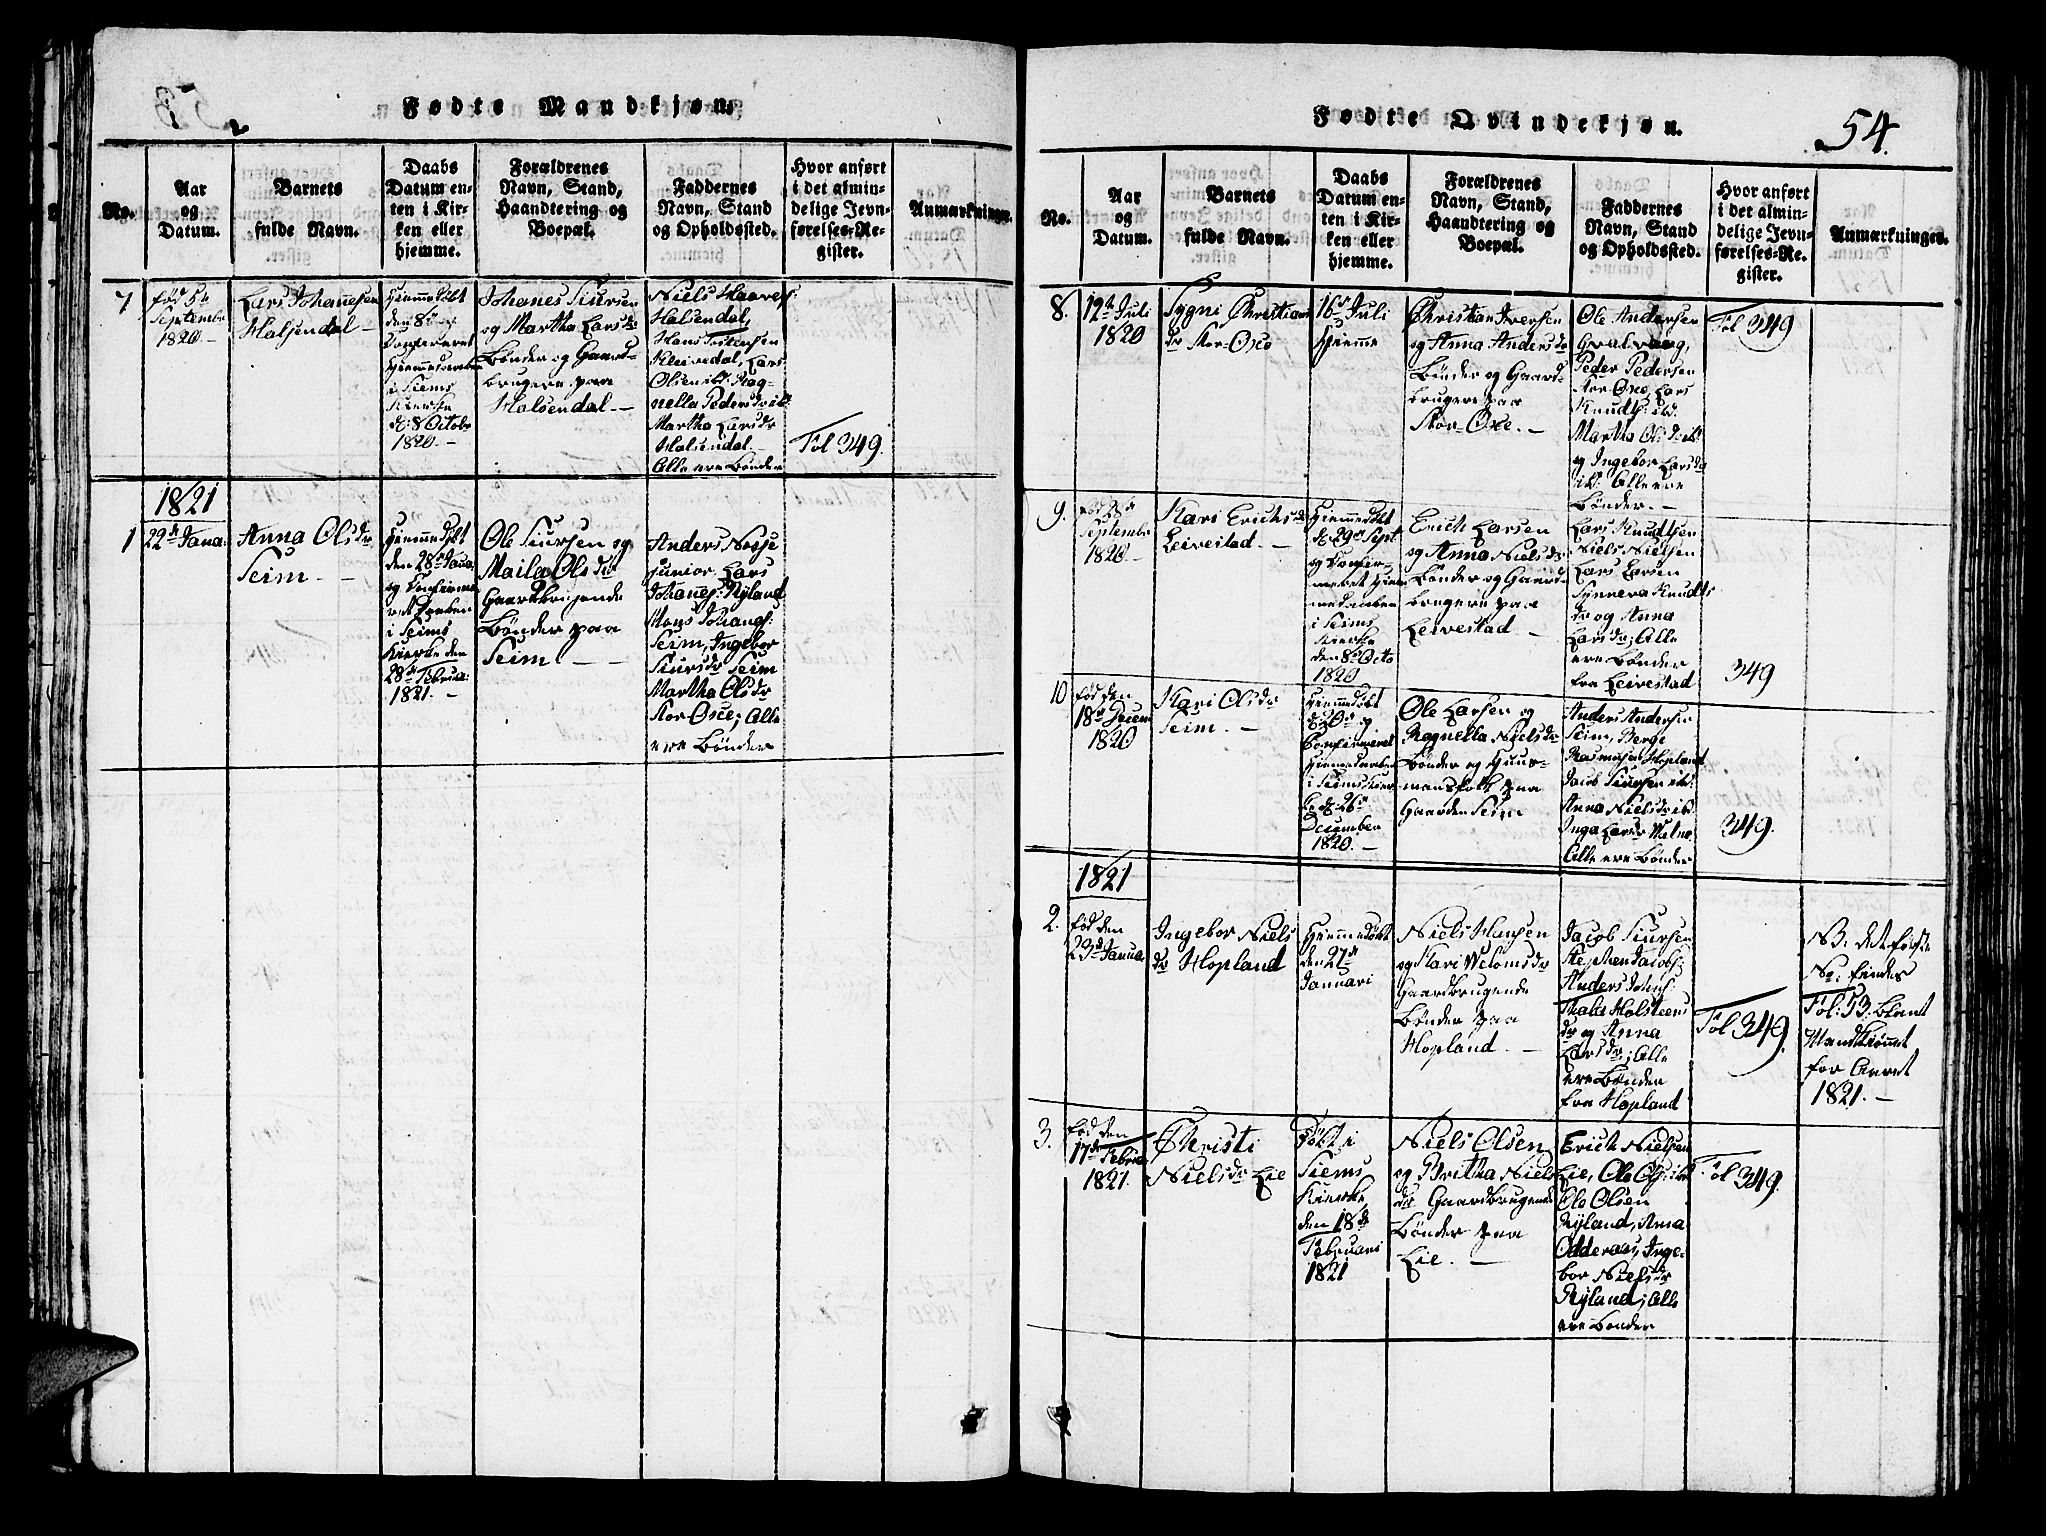 Fødte Mandkjøn.
No.
Aar
og
Datum.
Barnets
fulde Navn.
Daabs
Datum en-
ten i Kir-
ken eller
hjemme.
Forældrenes
Navn, Stand,
Haandtering og
Boepæl.
Faddernes
Navn, Stand
og Opholdssted.
Hvor anført
i det almin-
delige Jevn-
førelses-Re-
gister.
Anmærkninger.
7
født 5te
September
1820.-
Lars Johanesen
Halsendal
Hiemmedøbt
den 8
Hiemmedaaben
i Seims
Kierke
d: 8 Octobr
1820.-
Johanes Siursen
og Martha Larsdr
Bønder og Gaard-
brugere paa
Halsendal.-
Niels
Halsendal,
Hans
Kleivedal, Lars
Olsen ibd. Rag-
nella Pedersdr ibd:
Martha Larsdr
Halsendal.-
Alle ere Bønder
Fol 349.
1821
1
22de Janua.
Anna Olsdr
Seim.-
Hiemmedøbt
den 28de Janua.
og Confirme-
ret Daaben
i Seims
Kierke den
28de Februa:
1821.-
Ole Siursen og
Maila Olsdr
Gaardbrugende
Bønder paa
Seim
Anders
junior. Lars
Johanes: Ryland
Mons Johans:
Seim, Ingebor
Siursdr Seim
Martha Olsdr
Stor-Oxe; Alle
ere Bønder
Fødte Qvindekjøn.
54.
No.
Aar
og
Datum.
Barnets
fulde Navn.
Daabs
Datum en-
ten i Kir-
ken eller
hjemme.
Forældrenes
Navn, Stand,
Haandtering og
Boepæl.
Faddernes
Navn, Stand
og Opholdssted.
Hvor anført
i det almin-
delige Jevn-
førelses-Re-
gister.
Anmærkninger.
8.
12te Juli
1820
Sygni Christians
dr Stor-Oxe
16de Juli
Hiemme
Christian Iversen
og Anna Andersdr
Bønder og Gaard-
brugere paa
Stor-Oxe.-
Ole Andersen
Peder Pedersen
Stor-Oxe, Lars
Knuds: ibd.
Martha Olsdr ibd
og Ingebor Larsdr
ibd: Alle ere
Bønder.-
Fol 349
9.
fød 28de
September
1820.-
Kari Erichsdr
Leivestad.-
Hiemmedøbt
d: 29de Sept
og Confir-
meret Hiem-
medaaben
i Seims
Kierke
den 8de Octo
1820
Erich Larsen
og Anna Nielsdr
Bønder og Gaard-
brugere paa
Leivestad
Lars Knudtsen
Niels Nielsen
Lars Larsen
Synneva Knudts
dr og Anna
Larsdr; Alle
ere Bønder
fra Leivestad
349
10
fød den
18de Decem
1820
Kari Olsdr
Seim.-
Hiemmedøbt
d: 20de og
Confirmeret
Hiemmedaaben
i Seims Kier-
ke d: 26de
December
1820.-
Ole Larsen og
Ragnella Nielsdr
Bønder og Huus-
mansfolk paa
Gaarden Seim
Anders Andersen
Seim, Berge
Rasmusen Hopland
Jacob Siursen ibd:
Anna Nielsdr ibd
Inga Larsdr
Alle ere Bønder
349.
1821
2.
fød den
23de Janua
Ingebor Niels
dr Hopland
Hiemmedøbt
den 27de
Januari
Niels Hansen
og Kari
Gaardbrugende
Bønder paa
Hopland.-
Jacob Siursen
Stephen Jacobs:
Anders Johns:
dr og Anna
Larsdr; Alle
ere Bønder
fra Hopland
Fol 349.
NB. det første
No: findes
Fol: 53. blant
Mandkiønnet
for Aaret
1821.-
3.
fød den
17de Februa
1821.
Christi
Nielsdr Lie
Døbt i
Seims
Kierke
den 18de
Februari
1821
Niels Olsen
og Britha Niels
dr Gaardbrugende
Bønder paa
Lie.-
Erich Nielsen
Lie, Ole Ols: ibd
Ole Olsen
Ryland, Anna
Odderaas, Inge-
bor Nielsdr
Ryland; Alle
ere Bønder
Fol 349.